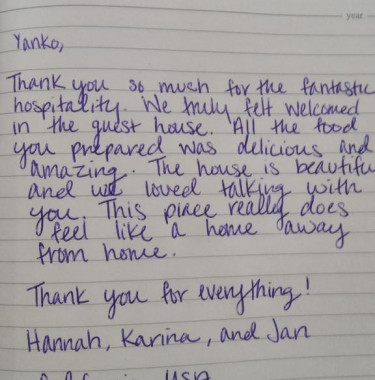 year
Yanko,
Thank you so much for the fantastic
hospitality. We truly felt welcomed
in the guest house. All the food
you prepared was delicious and
amazing. The house is beautifu
and we loved talking with
you. This place really does
feel like a home away
from home.
Thank you for everything!
Hannah, Karina, and Jan
USA